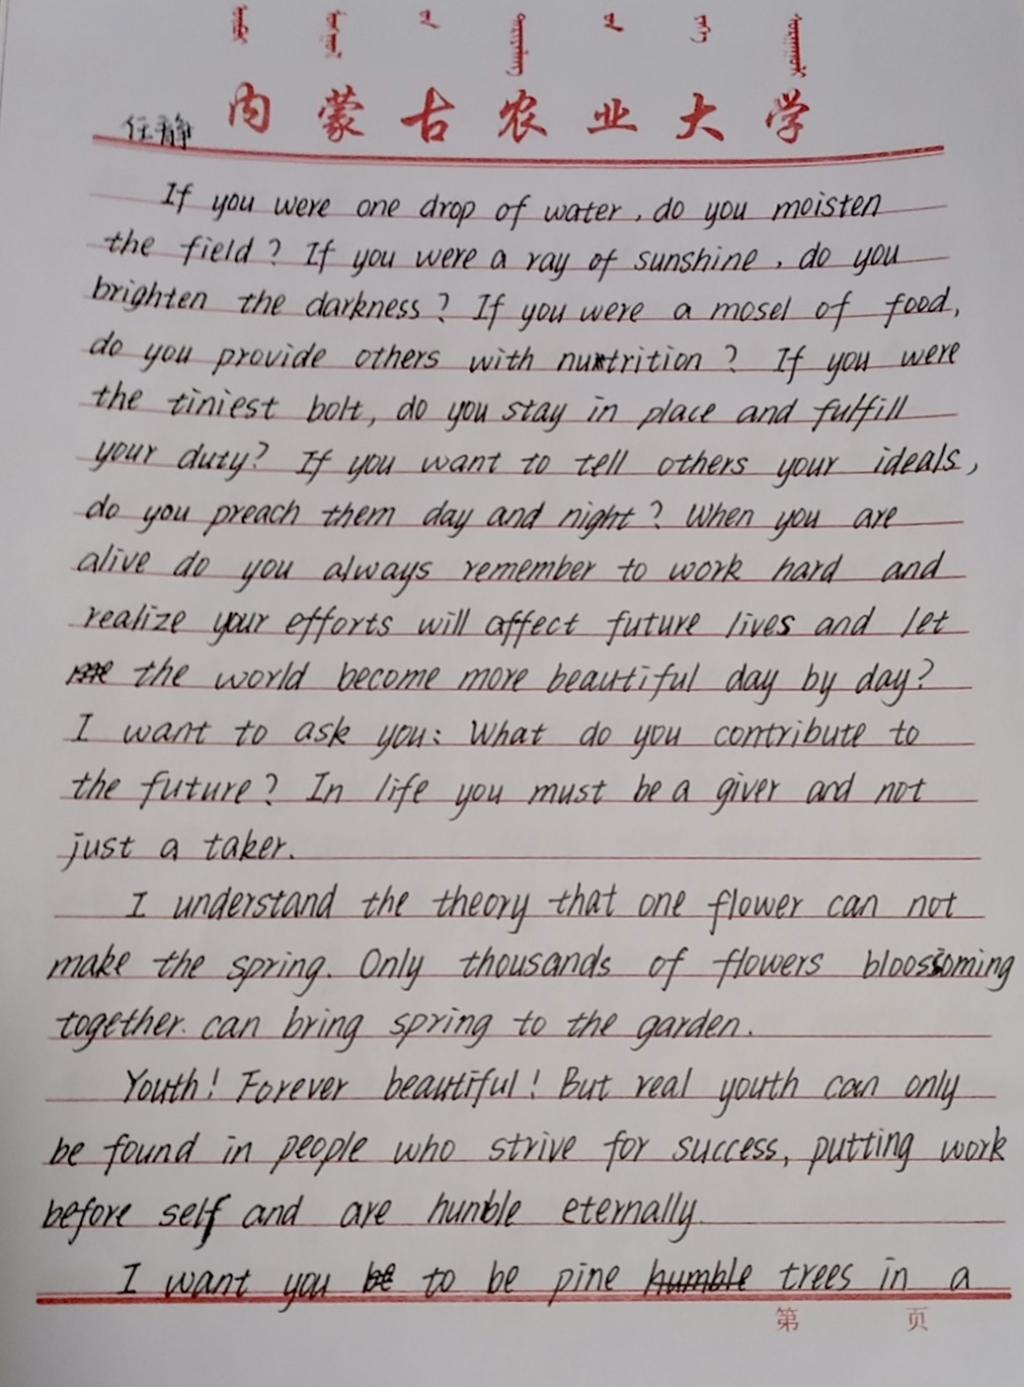 内蒙古农业大学
任静
If you were one drop of water, do you moisten
the field? If you were a ray of sunshine, do you
brighten the darkness? If you were a mosel of food,
do you provide others with nutrition? If you were
the tiniest bolt, do you stay in place and fulfill
your duty? If you want to tell others your ideals,
do you preach them day and night? When you are
alive do you always remember to work hard and
realize your efforts will affect future lives and let
the world become more beautiful day by day?
I want to ask you: What do you contribute to
the future? In life you must be a giver and not
just a taker.
I understand the theory that one flower can not
make the spring. Only thousands of flowers bloossoming
together. can bring spring to the garden.
Youth! Forever beautiful! But real youth can only
be found in people who strive for success, putting work
before self and are hunble eternally.
I want you to be pine trees in a
第 页